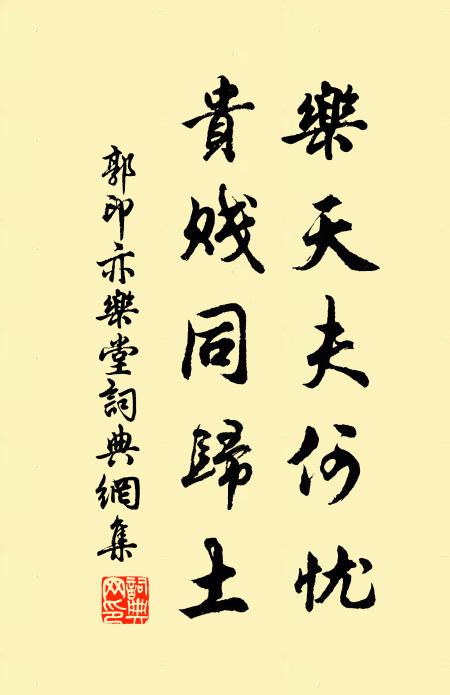 樂天夫何忧
貴賤同歸土
郭印亦樂堂詞典網集
詞典网印